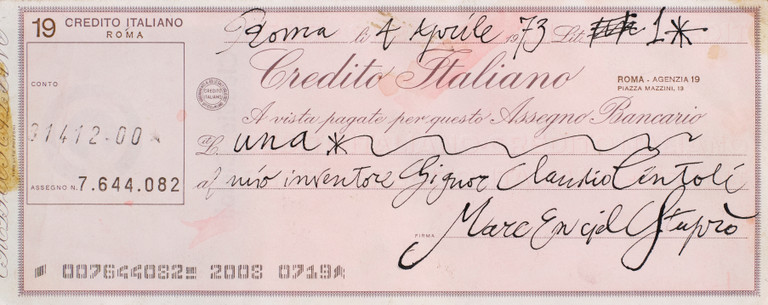 19 CREDITO ITALIANO
ROMA
Roma li 4 Aprile 1973 Lit. 1*
CONTO
31412-00
CREDITO ITALIANO
Credito Italiano
ROMA - AGENZIA 19
PIAZZA MAZZINI, 13
A vista pagate per questo Assegno Bancario
L. una *
ASSEGNO N. 7.644.082
al mio inventore Signor Claudio Cintoli
FIRMA Marc
007644082 2008 0719